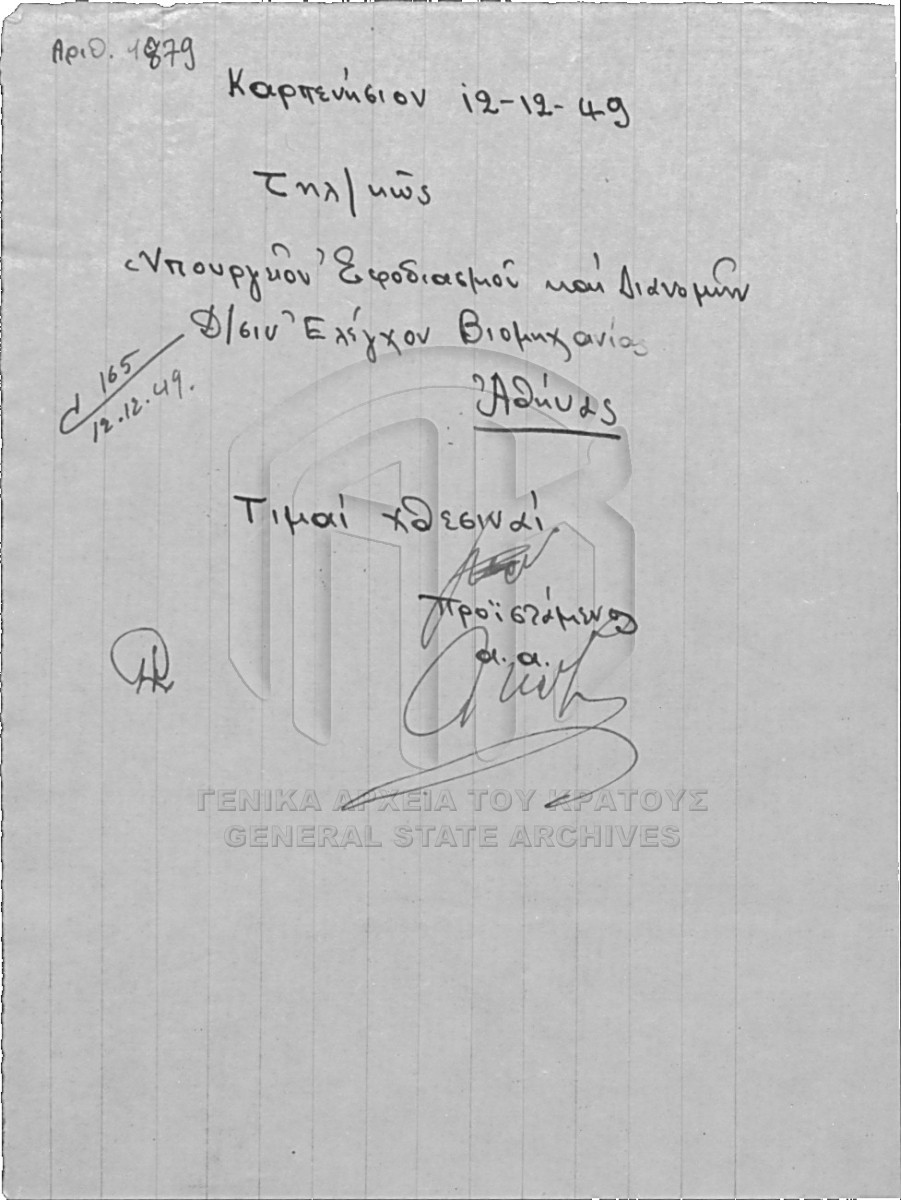 Αριθ. 1879
Καρπενήσιον 12-12-49
Τηλ/κῶς
Ὑπουργεῖον Ἐφοδιασμοῦ καί Διανομῶν
Δ/σιν Ἐλέγχου Βιομηχανίας
165
12.12.49.
Ἀθήνας
Τιμαί χθεσιναί.
Προϊστάμενος
α.α.
ΓΕΝΙΚΑ ΑΡΧΕΙΑ ΤΟΥ ΚΡΑΤΟΥΣ
GENERAL STATE ARCHIVES